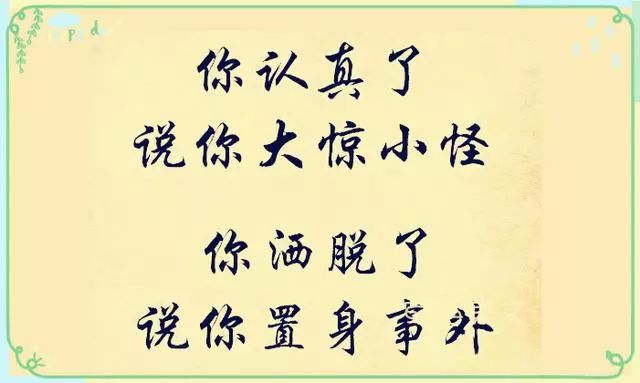 你认真了
说你大惊小怪
你洒脱了
说你置身事外